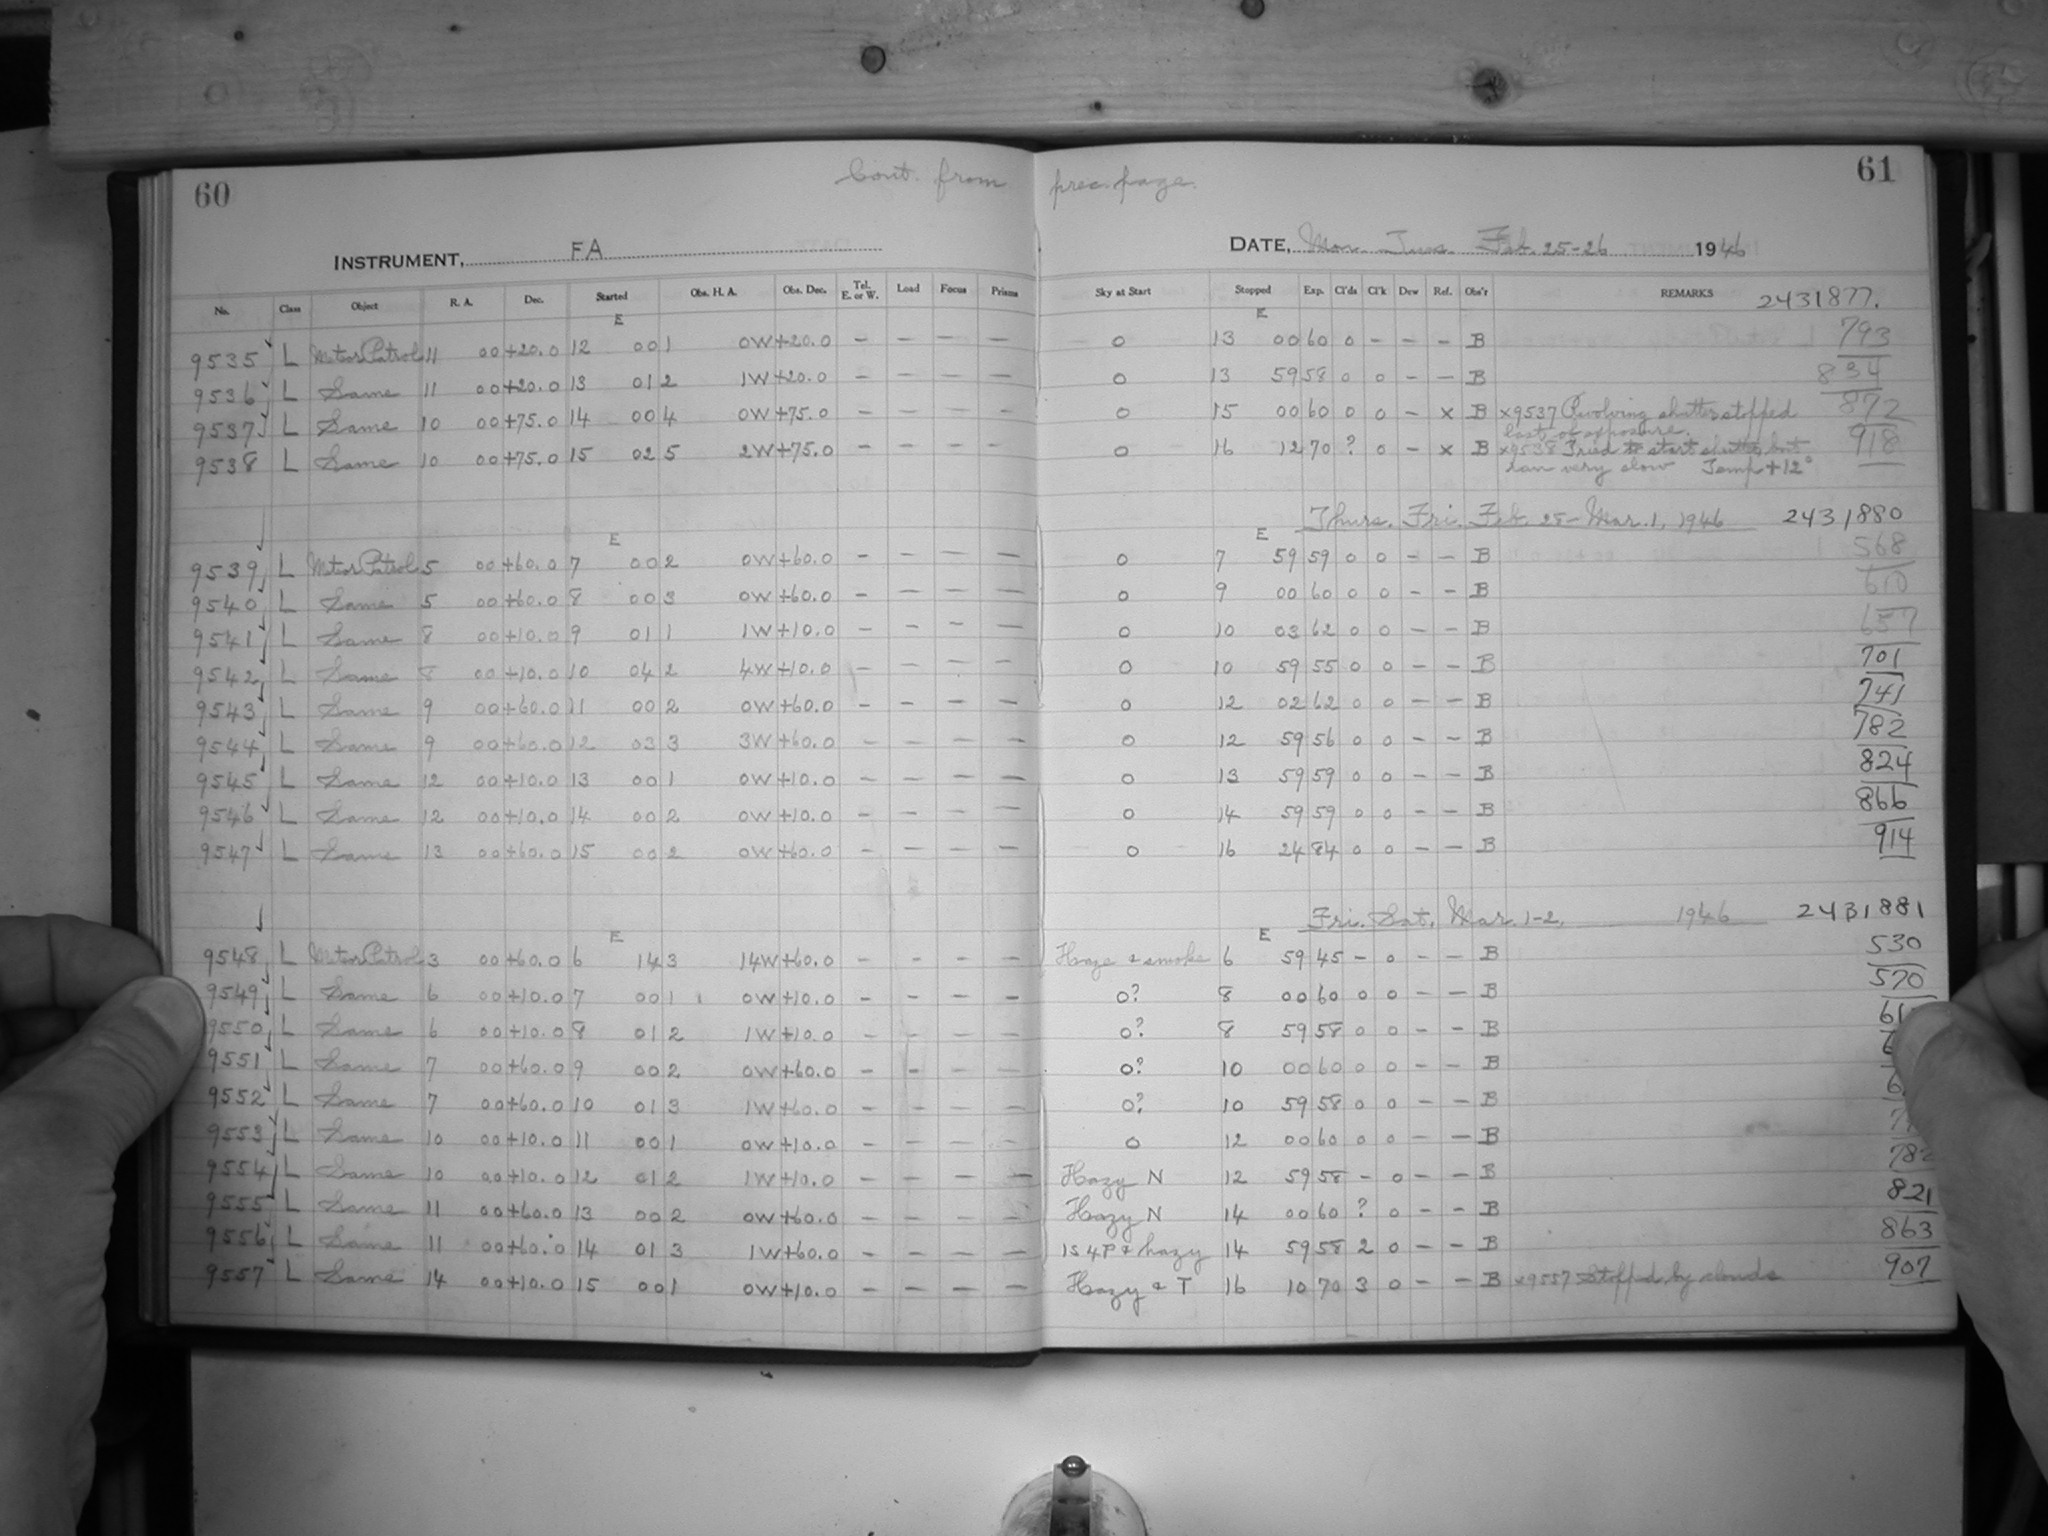 60 Cont. from prec. page. 61
INSTRUMENT, FA DATE, Mon. Tues. Feb. 25-26 1946
No. Class Object R. A. Dec. Started Obs. H. A. Obs. Dec. Tel. E. or W. Load Focus Prisms Sky at Start Stopped Exp. Cl'ds Cl'k Dew Ref. Obs'r REMARKS 2431877.
E E
9535 L Meteor Patrol 11 00 +20.0 12 00 1 0W +20.0 — — — — 0 13 00 60 0 - - - B 793
9536 L Same 11 00 +20.0 13 01 2 1W +20.0 — — — — 0 13 59 58 0 0 - - B 834
9537 L Same 10 00 +75.0 14 00 4 0W +75.0 — — — — 0 15 00 60 0 0 - x B x9537 Revolving shutter stopped 872
last of exposure.
9538 L Same 10 00 +75.0 15 02 5 2W +75.0 — — — — 0 16 12 70 ? 0 - x B x9538 Tried to start shutter but 918
ran very slow Temp +12°
Thurs. Fri. Feb. 28 - Mar. 1, 1946 2431880
E E
9539 L Meteor Patrol 5 00 +60.0 7 00 2 0W +60.0 — — — — 0 7 59 59 0 0 - - B 568
9540 L Same 5 00 +60.0 8 00 3 0W +60.0 — — — — 0 9 00 60 0 0 - - B 610
9541 L Same 8 00 +10.0 9 01 1 1W +10.0 — — — — 0 10 03 62 0 0 - - B 657
9542 L Same 8 00 +10.0 10 04 2 4W +10.0 — — — — 0 10 59 55 0 0 - - B 701
9543 L Same 9 00 +60.0 11 00 2 0W +60.0 — — — — 0 12 02 62 0 0 - - B 741
9544 L Same 9 00 +60.0 12 03 3 3W +60.0 — — — — 0 12 59 56 0 0 - - B 782
9545 L Same 12 00 +10.0 13 00 1 0W +10.0 — — — — 0 13 59 59 0 0 - - B 824
9546 L Same 12 00 +10.0 14 00 2 0W +10.0 — — — — 0 14 59 59 0 0 - - B 866
9547 L Same 13 00 +60.0 15 00 2 0W +60.0 — — — — 0 16 24 84 0 0 - - B 914
Fri. Sat. Mar. 1-2, 1946 2431881
E E
9548 L Meteor Patrol 3 00 +60.0 6 14 3 14W +60.0 - - - - Haze & smoke 6 59 45 - 0 - - B 530
9549 L Same 6 00 +10.0 7 00 1 0W +10.0 — — — — 0? 8 00 60 0 0 - - B 570
9550 L Same 6 00 +10.0 8 01 2 1W +10.0 — — — — 0? 8 59 58 0 0 - - B
9551 L Same 7 00 +60.0 9 00 2 0W +60.0 — — — — 0? 10 00 60 0 0 - - B
9552 L Same 7 00 +60.0 10 01 3 1W +60.0 — — — — 0? 10 59 58 0 0 - - B
9553 L Same 10 00 +10.0 11 00 1 0W +10.0 — — — — 0 12 00 60 0 0 - - B
9554 L Same 10 00 +10.0 12 01 2 1W +10.0 — — — — Hazy N 12 59 58 - 0 - - B 782
9555 L Same 11 00 +60.0 13 00 2 0W +60.0 — — — — Hazy N 14 00 60 ? 0 - - B 821
9556 L Same 11 00 +60.0 14 01 3 1W +60.0 — — — — 1S 4P & hazy 14 59 58 2 0 - - B 863
9557 L Same 14 00 +10.0 15 00 1 0W +10.0 — — — — Hazy & T 16 10 70 3 0 - - B x9557 Stopped by clouds 907